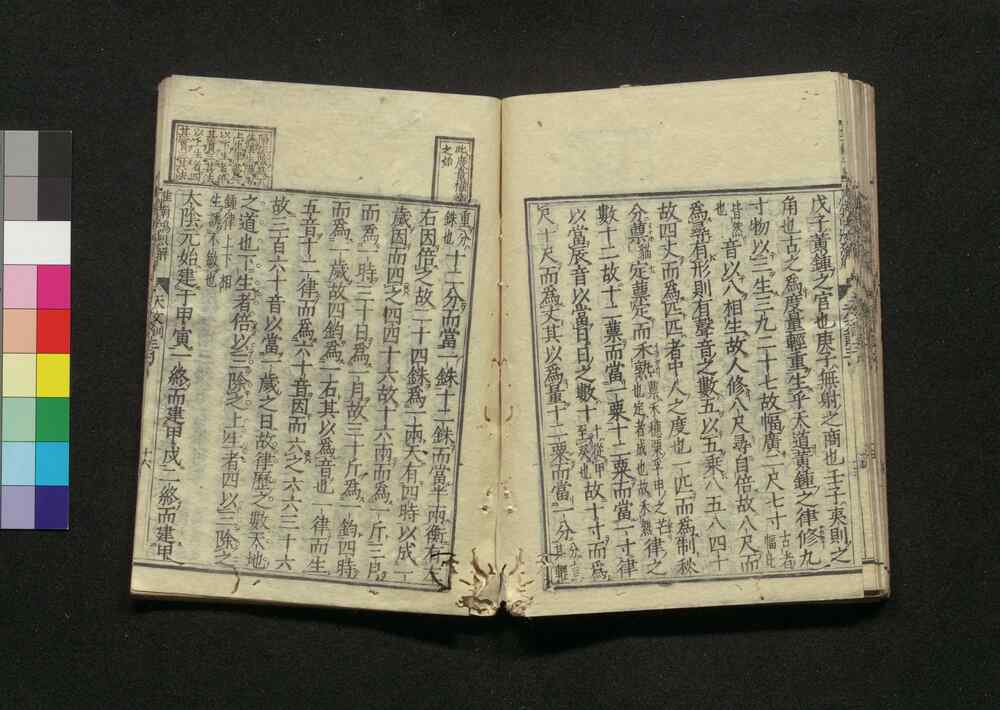 戊子黃鍾之宮也庚子無射之商也壬子夷則之
角也古之爲度量輕重生乎天道黃鍾之律修九
寸物以三生三九二十七故幅廣二尺七寸 古者幅比
皆然也 音以八相生故人修八尺尋自倍故八尺而
爲尋有形則有聲音之數五以五乘八五八四十
故四丈而爲匹匹者中人之度也一匹而爲制秋
分蔈定蔈定而禾熟 律之
數十二故十二蔈而當一粟十二粟而當一寸律
以當辰音以當日日之數十 十從甲至癸也 故十寸而爲
尺十尺而爲丈其以爲量十二粟而當一分
重分
銖也 十二分而當一銖十二銖而當半兩衡有
右因倍之故二十四銖爲一兩天有四時以成一
歲因而四之四四十六故十六兩而爲一斤三月
而爲一時三十日爲一月故三十斤爲一鈞四時
而爲一歲故四鈞爲一石其以爲音也一律而生
五音十二律而爲六十音因而六之六六三十六
故三百六十音以當一歲之日故律歷之數天地
之道也下生者倍以三除之上生者四以三除之
鍾律上下相
生誘不敏也
太陰元始建于甲寅一終而建甲戌二終而建甲
天文訓
十六